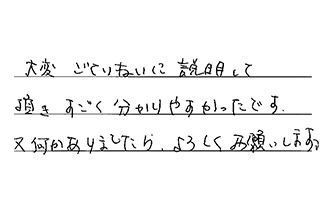 大変 ごていねいに 説明して
頂き すごく 分かりやすかったです.
又何かありましたら, よろしく お願いします。